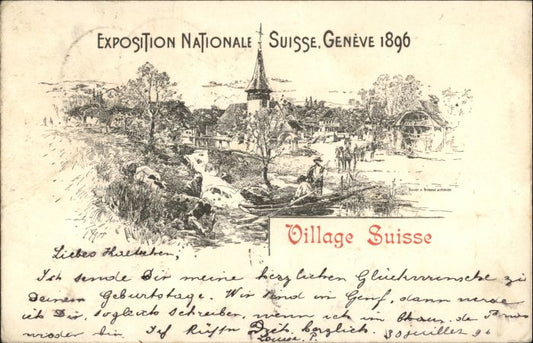 EXPOSITION NATIONALE SUISSE. GENÈVE 1896
Village Suisse
Liebes
Ich sende Dir meine herzlichen Glückwunsche zu
Deinem Geburtstage. Wir sind in Genf, dann werde
ich Dir, sogleich schreiben, wenn ich in
wieder bin. Ich Dich herzlich.
30 juillet 96
Louise P.